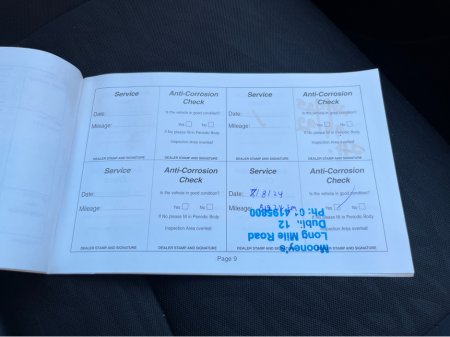 Service
Anti-Corrosion
Check
Date:
Is the vehicle in good condition?
Mileage:
Yes No
If No please fill in Periodic Body
Inspection Area overleaf
DEALER STAMP AND SIGNATURE
DEALER STAMP AND SIGNATURE
Service
Anti-Corrosion
Check
Date:
Is the vehicle in good condition?
Mileage:
Yes No
If No please fill in Periodic Body
Inspection Area overleaf
DEALER STAMP AND SIGNATURE
DEALER STAMP AND SIGNATURE
Service
Anti-Corrosion
Check
Date:
Is the vehicle in good condition?
Mileage:
Yes No
If No please fill in Periodic Body
Inspection Area overleaf
DEALER STAMP AND SIGNATURE
DEALER STAMP AND SIGNATURE
Service
Anti-Corrosion
Check
Date: 8/8/24
Is the vehicle in good condition?
Mileage:
Yes No
If No please fill in Periodic Body
Inspection Area overleaf
DEALER STAMP AND SIGNATURE
DEALER STAMP AND SIGNATURE
Mooney's
Long Mile Road
12
Ph: 01 4195800
Page 9